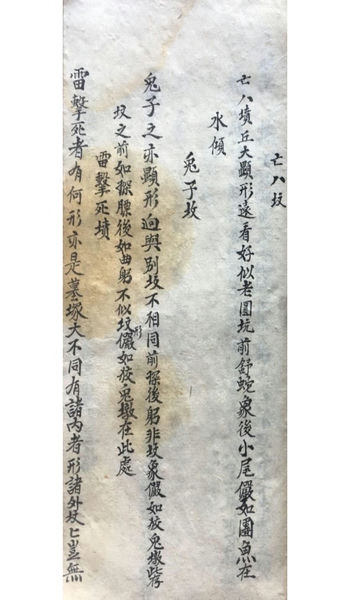 亡八坟
亡八墳丘大顯形遠看好似老圓坑前舒蛇象後小尾儼如團魚在
水傾
兎子坟
兎子之亦顯形逈與別坟不相同前探後躬非坟象儼如狡兎墩
坟之前如探腰後如曲躬不似坟形儼如狡兎墩在此處
雷擊死墳
雷擊死者有何形亦是墓塚大不同有諸內者形諸外坟上豈無